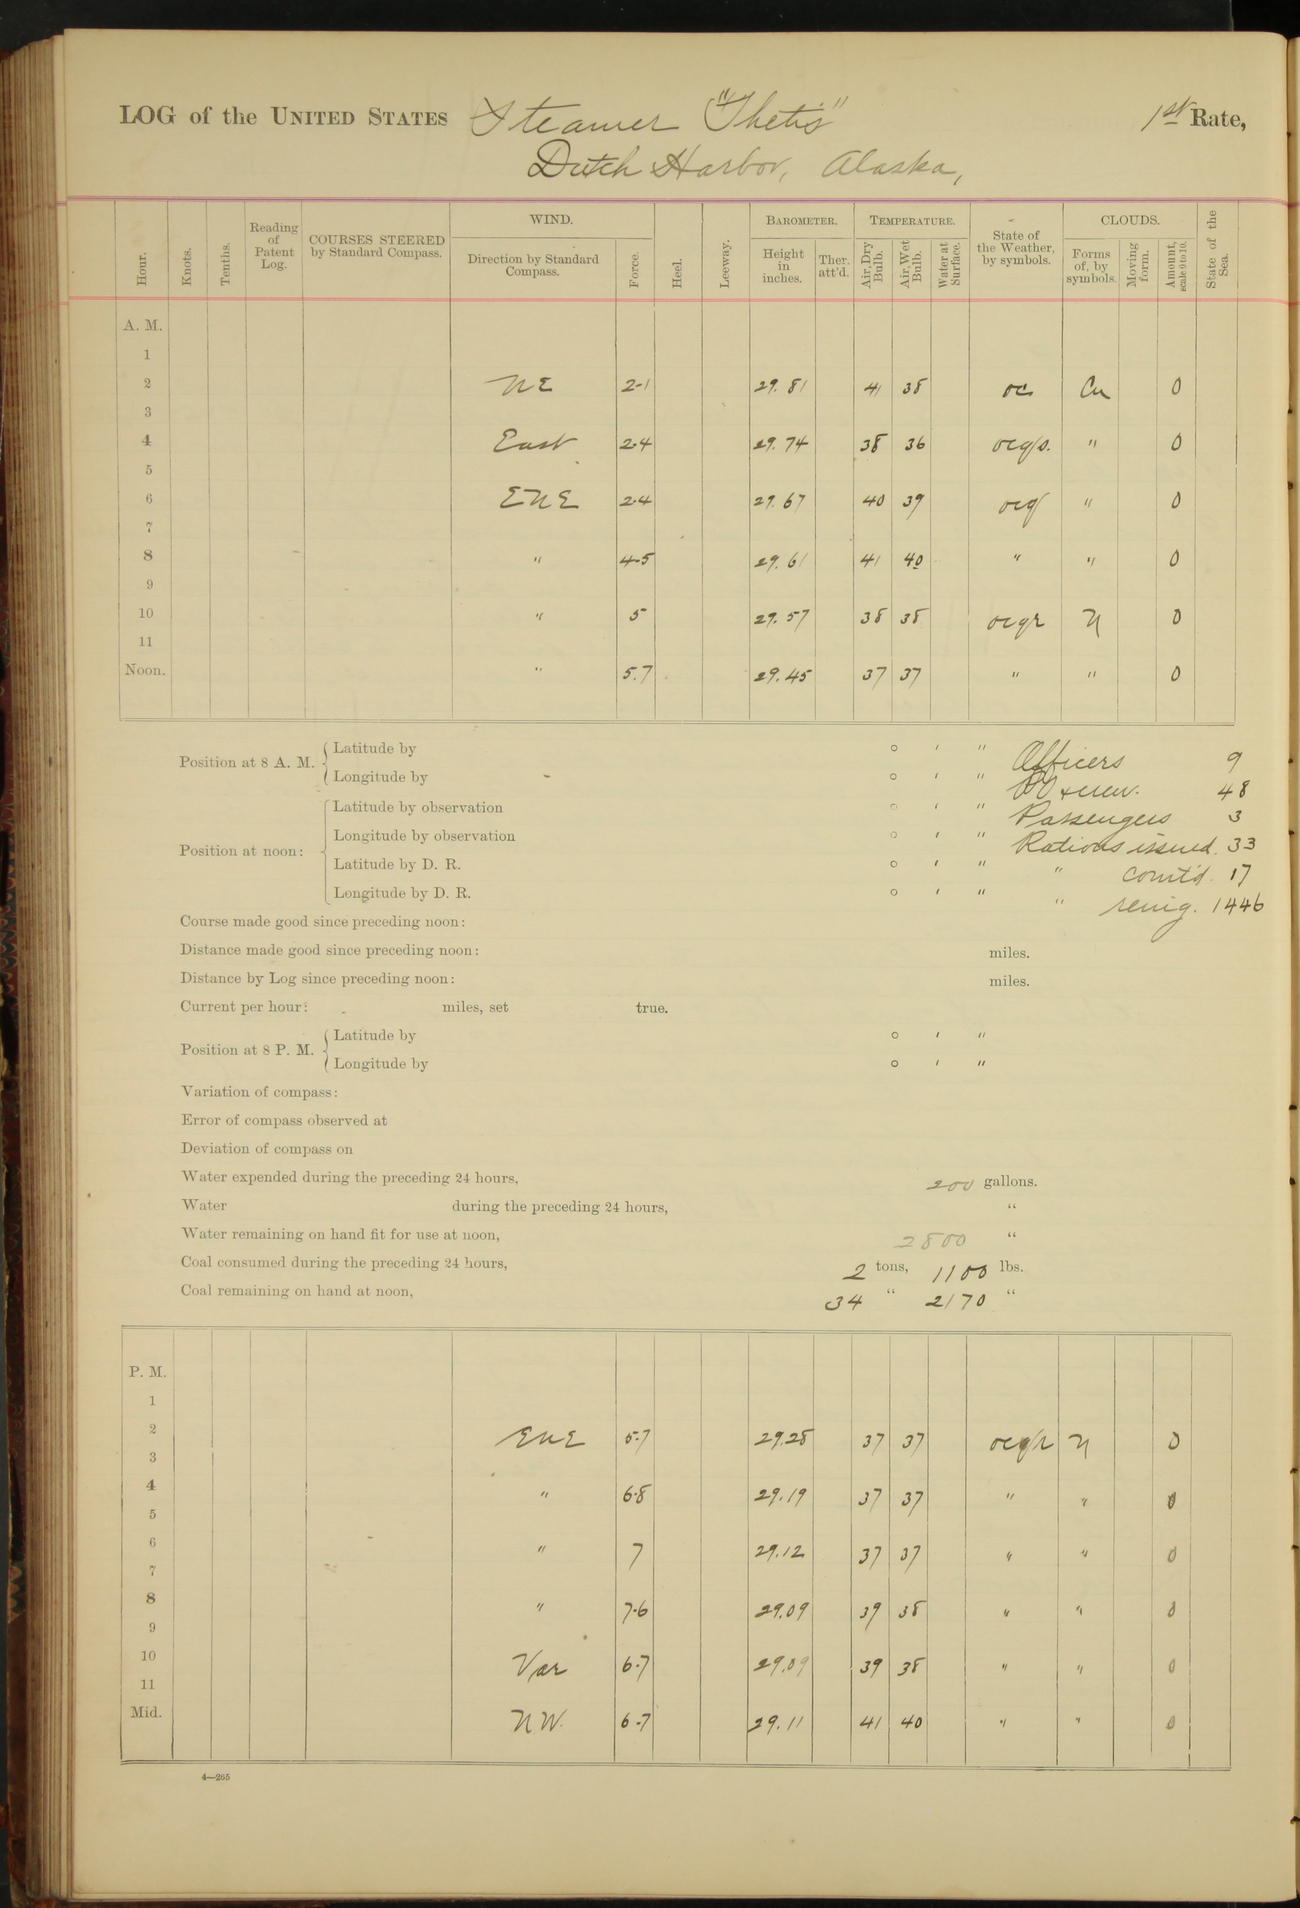 LOG of the UNITED STATES Steamer "Thetis" 1st Rate,
Dutch Harbor, Alaska,
Hour. Knots. Tenths. Reading of Patent Log. COURSES STEERED by Standard Compass. WIND. Direction by Standard Compass. Force. Heel. Leeway. BAROMETER. Height in inches. Ther. att'd. TEMPERATURE. Air, Dry Bulb. Air, Wet Bulb. Water at Surface. State of the Weather, by symbols. CLOUDS. Forms of, by symbols. Moving form. Amount, scale 0 to 10. State of the Sea.
A. M.
1
2 NE 2-1 29.81 41 38 oc Cu 0
3
4 East 2-4 29.74 38 36 ocqs. " 0
5
6 ENE 2-4 29.67 40 39 ocq " 0
7
8 " 4-5 29.61 41 40 " " 0
9
10 " 5 29.57 38 38 ocqr N 0
11
Noon. " 5.7 29.45 37 37 " " 0
Position at 8 A. M. Latitude by ° ′ ″ Officers 9
Longitude by ° ′ ″ PO & crew. 48
Position at noon: Latitude by observation ° ′ ″ Passengers 3
Longitude by observation ° ′ ″ Rations issued. 33
Latitude by D. R. ° ′ ″ " comt'd. 17
Longitude by D. R. ° ′ ″ " remg. 1446
Course made good since preceding noon:
Distance made good since preceding noon: miles.
Distance by Log since preceding noon: miles.
Current per hour: miles, set true.
Position at 8 P. M. Latitude by ° ′ ″
Longitude by ° ′ ″
Variation of compass:
Error of compass observed at
Deviation of compass on
Water expended during the preceding 24 hours, 200 gallons.
Water during the preceding 24 hours, "
Water remaining on hand fit for use at noon, 2800 "
Coal consumed during the preceding 24 hours, 2 tons, 1100 lbs.
Coal remaining on hand at noon, 34 " 2170 "
P. M.
1
2 ENE 5-7 29.28 37 37 ocqr N 0
3
4 " 6-8 29.19 37 37 " " 0
5
6 " 7 29.12 37 37 " " 0
7
8 " 7-6 29.09 39 38 " " 0
9
10 Var 6-7 29.09 39 38 " " 0
11
Mid. NW. 6-7 29.11 41 40 " " 0
4—265